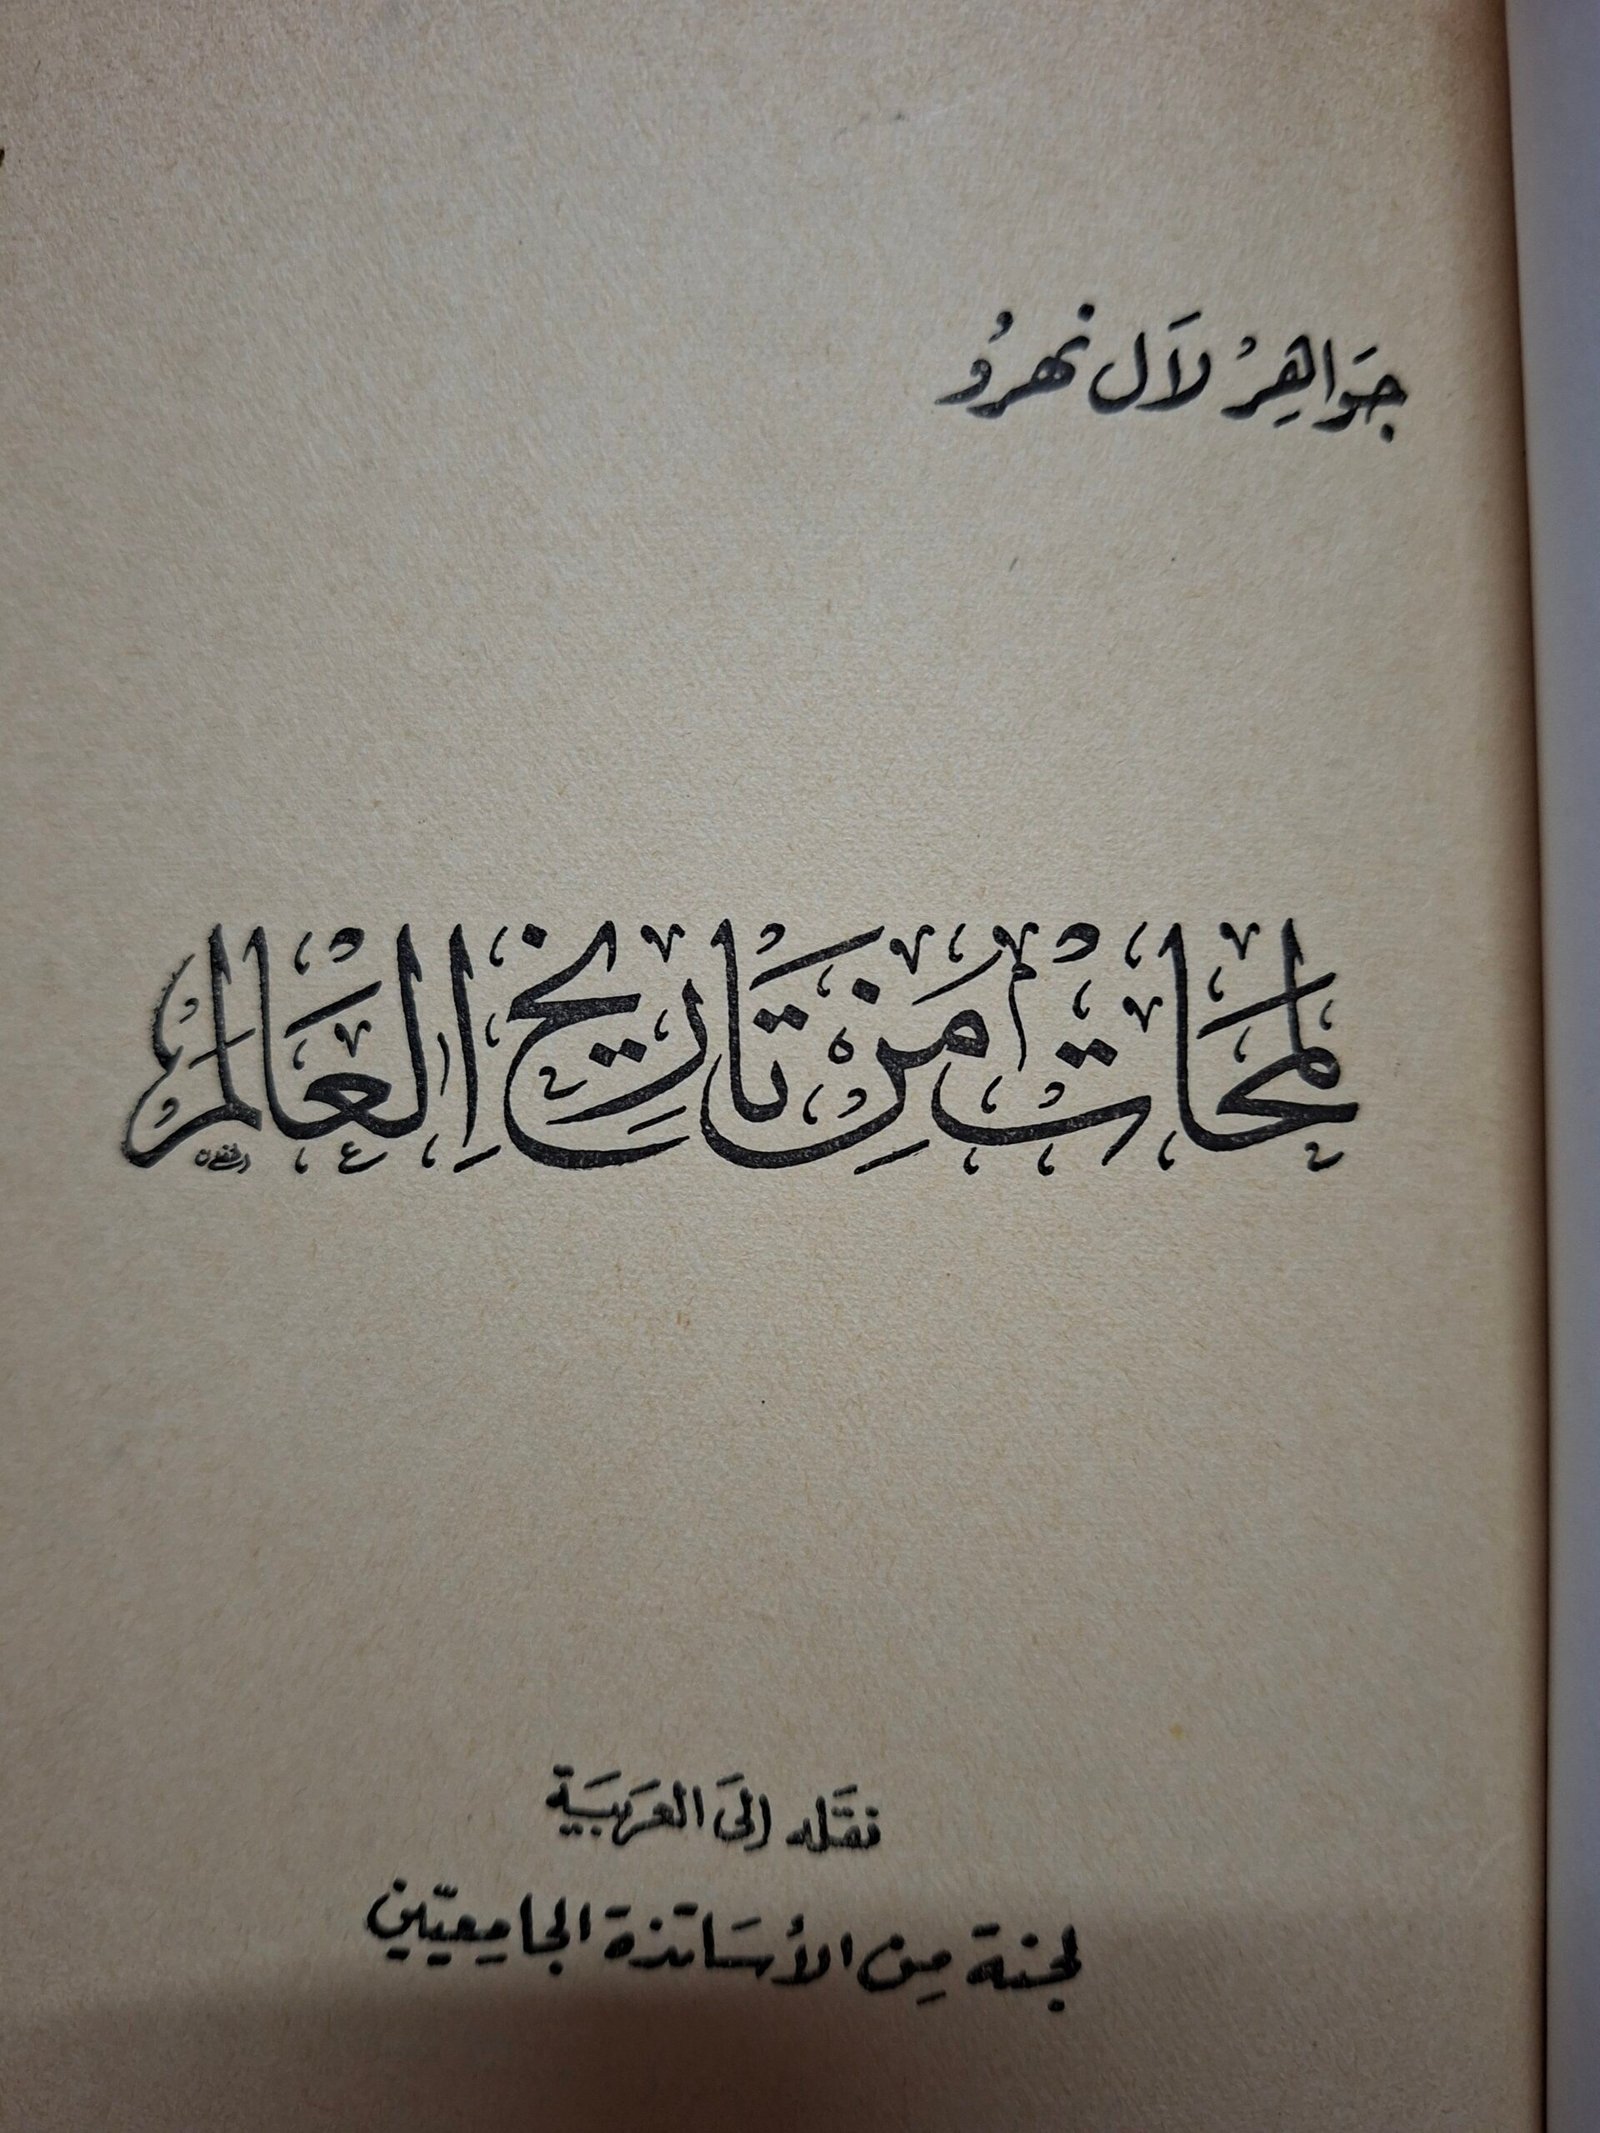 جَوَاهِرْ لَال نَهرُو
لمحَات مِن تَاريخ العَالم
نقَله إلى العَرَبيَة
لجنة مِن الأسَاتذة الجامِعيّين